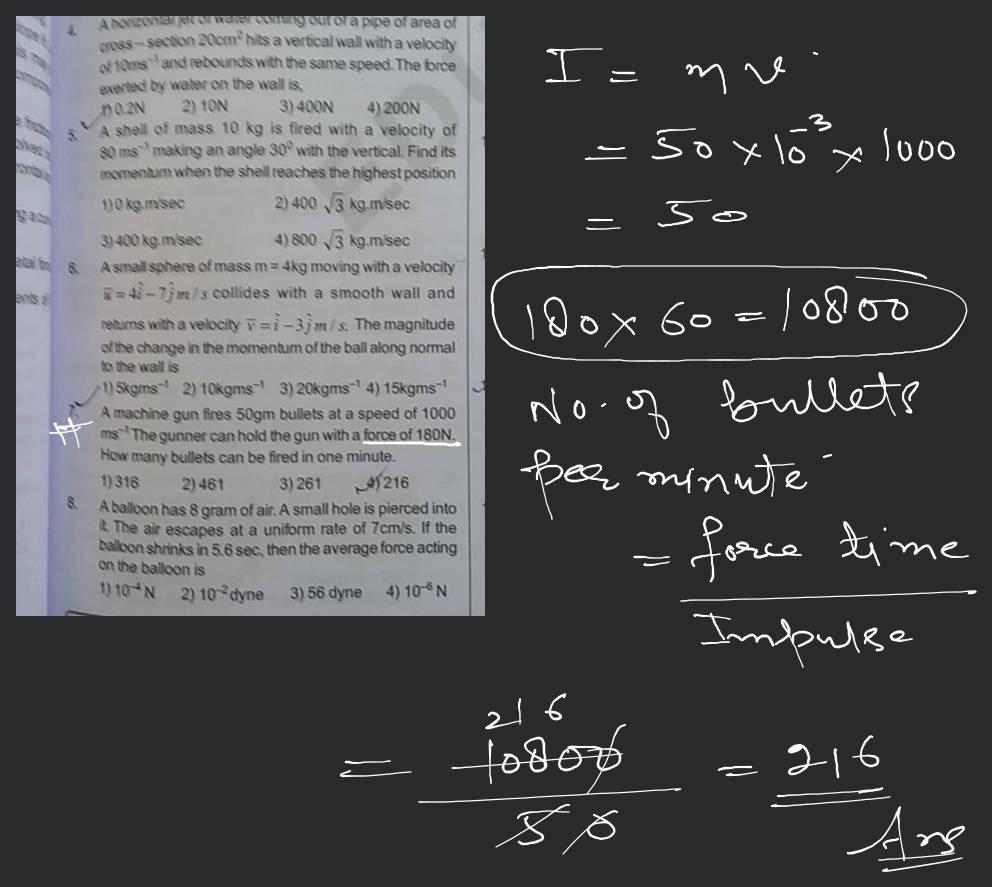 4. A horizontal jet of water coming out of a pipe of area of
cross – section 20cm² hits a vertical wall with a velocity
of 10ms⁻¹ and rebounds with the same speed. The force
exerted by water on the wall is,
1) 0.2N 2) 10N 3) 400N 4) 200N
5. A shell of mass 10 kg is fired with a velocity of
80 ms⁻¹ making an angle 30⁰ with the vertical. Find its
momentum when the shell reaches the highest position
1) 0 kg.m/sec 2) 400 √3 kg.m/sec
3) 400 kg.m/sec 4) 800 √3 kg.m/sec
6. A small sphere of mass m = 4kg moving with a velocity
u̅ = 4î – 7ĵ m/s collides with a smooth wall and
returns with a velocity v̅ = î – 3ĵ m/s. The magnitude
of the change in the momentum of the ball along normal
to the wall is
1) 5kgms⁻¹ 2) 10kgms⁻¹ 3) 20kgms⁻¹ 4) 15kgms⁻¹
7. A machine gun fires 50gm bullets at a speed of 1000
ms⁻¹ The gunner can hold the gun with a force of 180N.
How many bullets can be fired in one minute.
1) 316 2) 461 3) 261 4) 216
8. A balloon has 8 gram of air. A small hole is pierced into
it. The air escapes at a uniform rate of 7cm/s. If the
balloon shrinks in 5.6 sec, then the average force acting
on the balloon is
1) 10⁻⁴ N 2) 10⁻² dyne 3) 56 dyne 4) 10⁻⁶ N
I = mv
= 50 × 10⁻³ × 1000
= 50
180 × 60 = 10800
No. of bullets
per minute
= force time
Impulse
216
= 10800 = 216
50
Ans